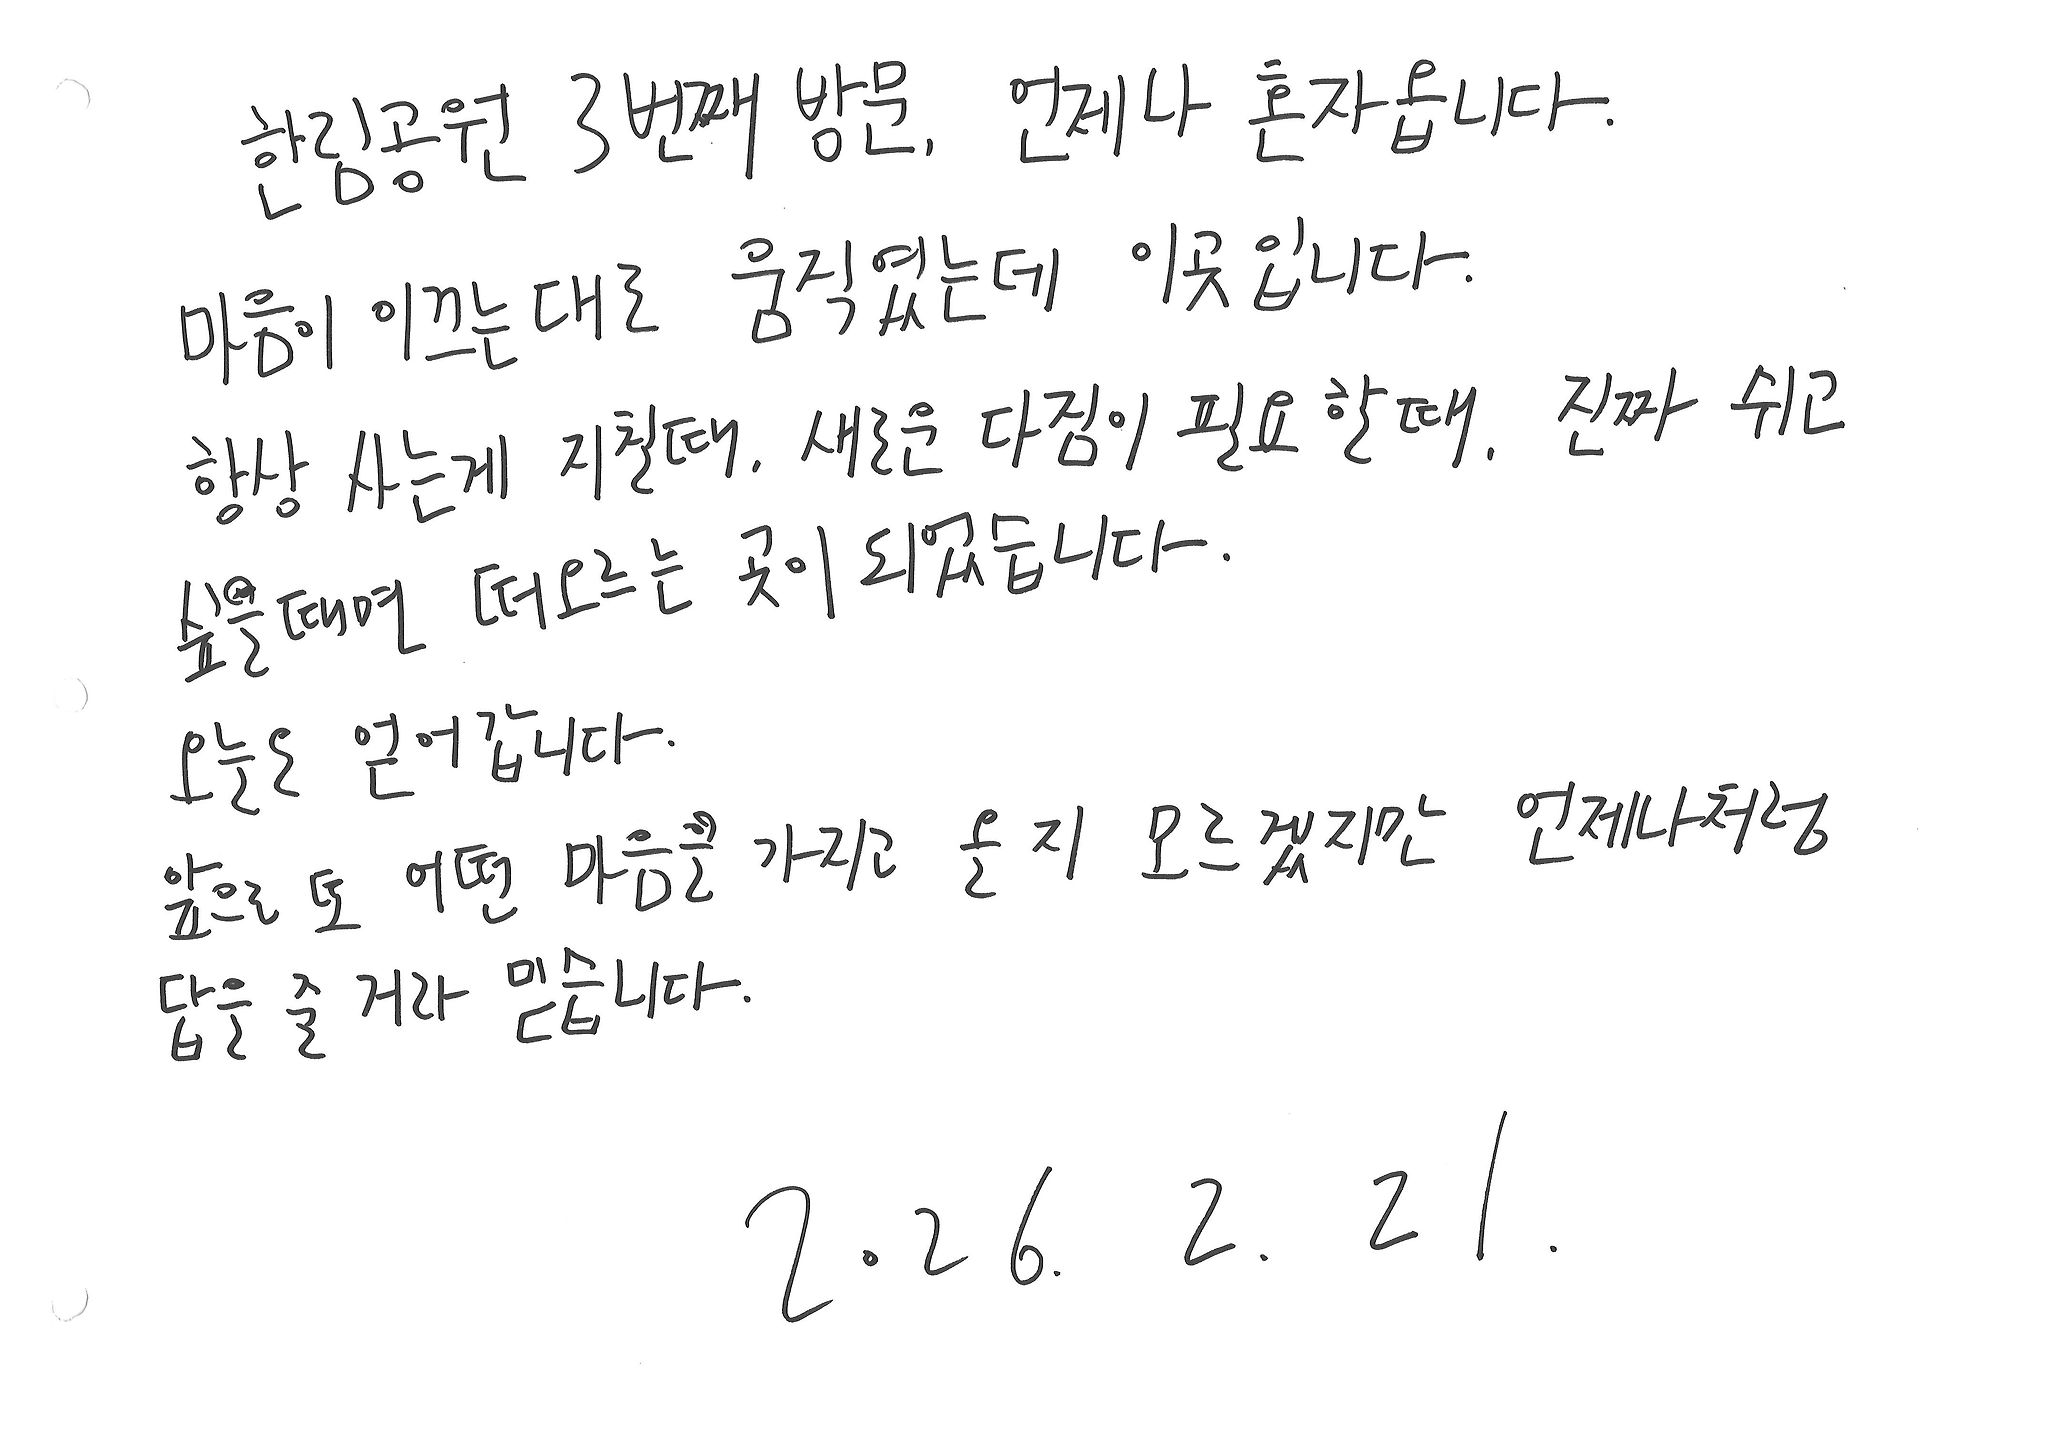 한림공원 3번째 방문, 언제나 혼자옵니다.
마음이 이끄는대로 움직였는데 이곳입니다.
항상 사는게 지칠때, 새로운 다짐이 필요할때, 진짜 쉬고
싶을때면 떠오르는 곳이 되었듭니다.
오늘은 얻어갑니다.
앞으로 또 어떤 마음을 가지고 올지 모르겠지만 언제나처럼
답을 줄 거라 믿습니다.
2026. 2. 21.